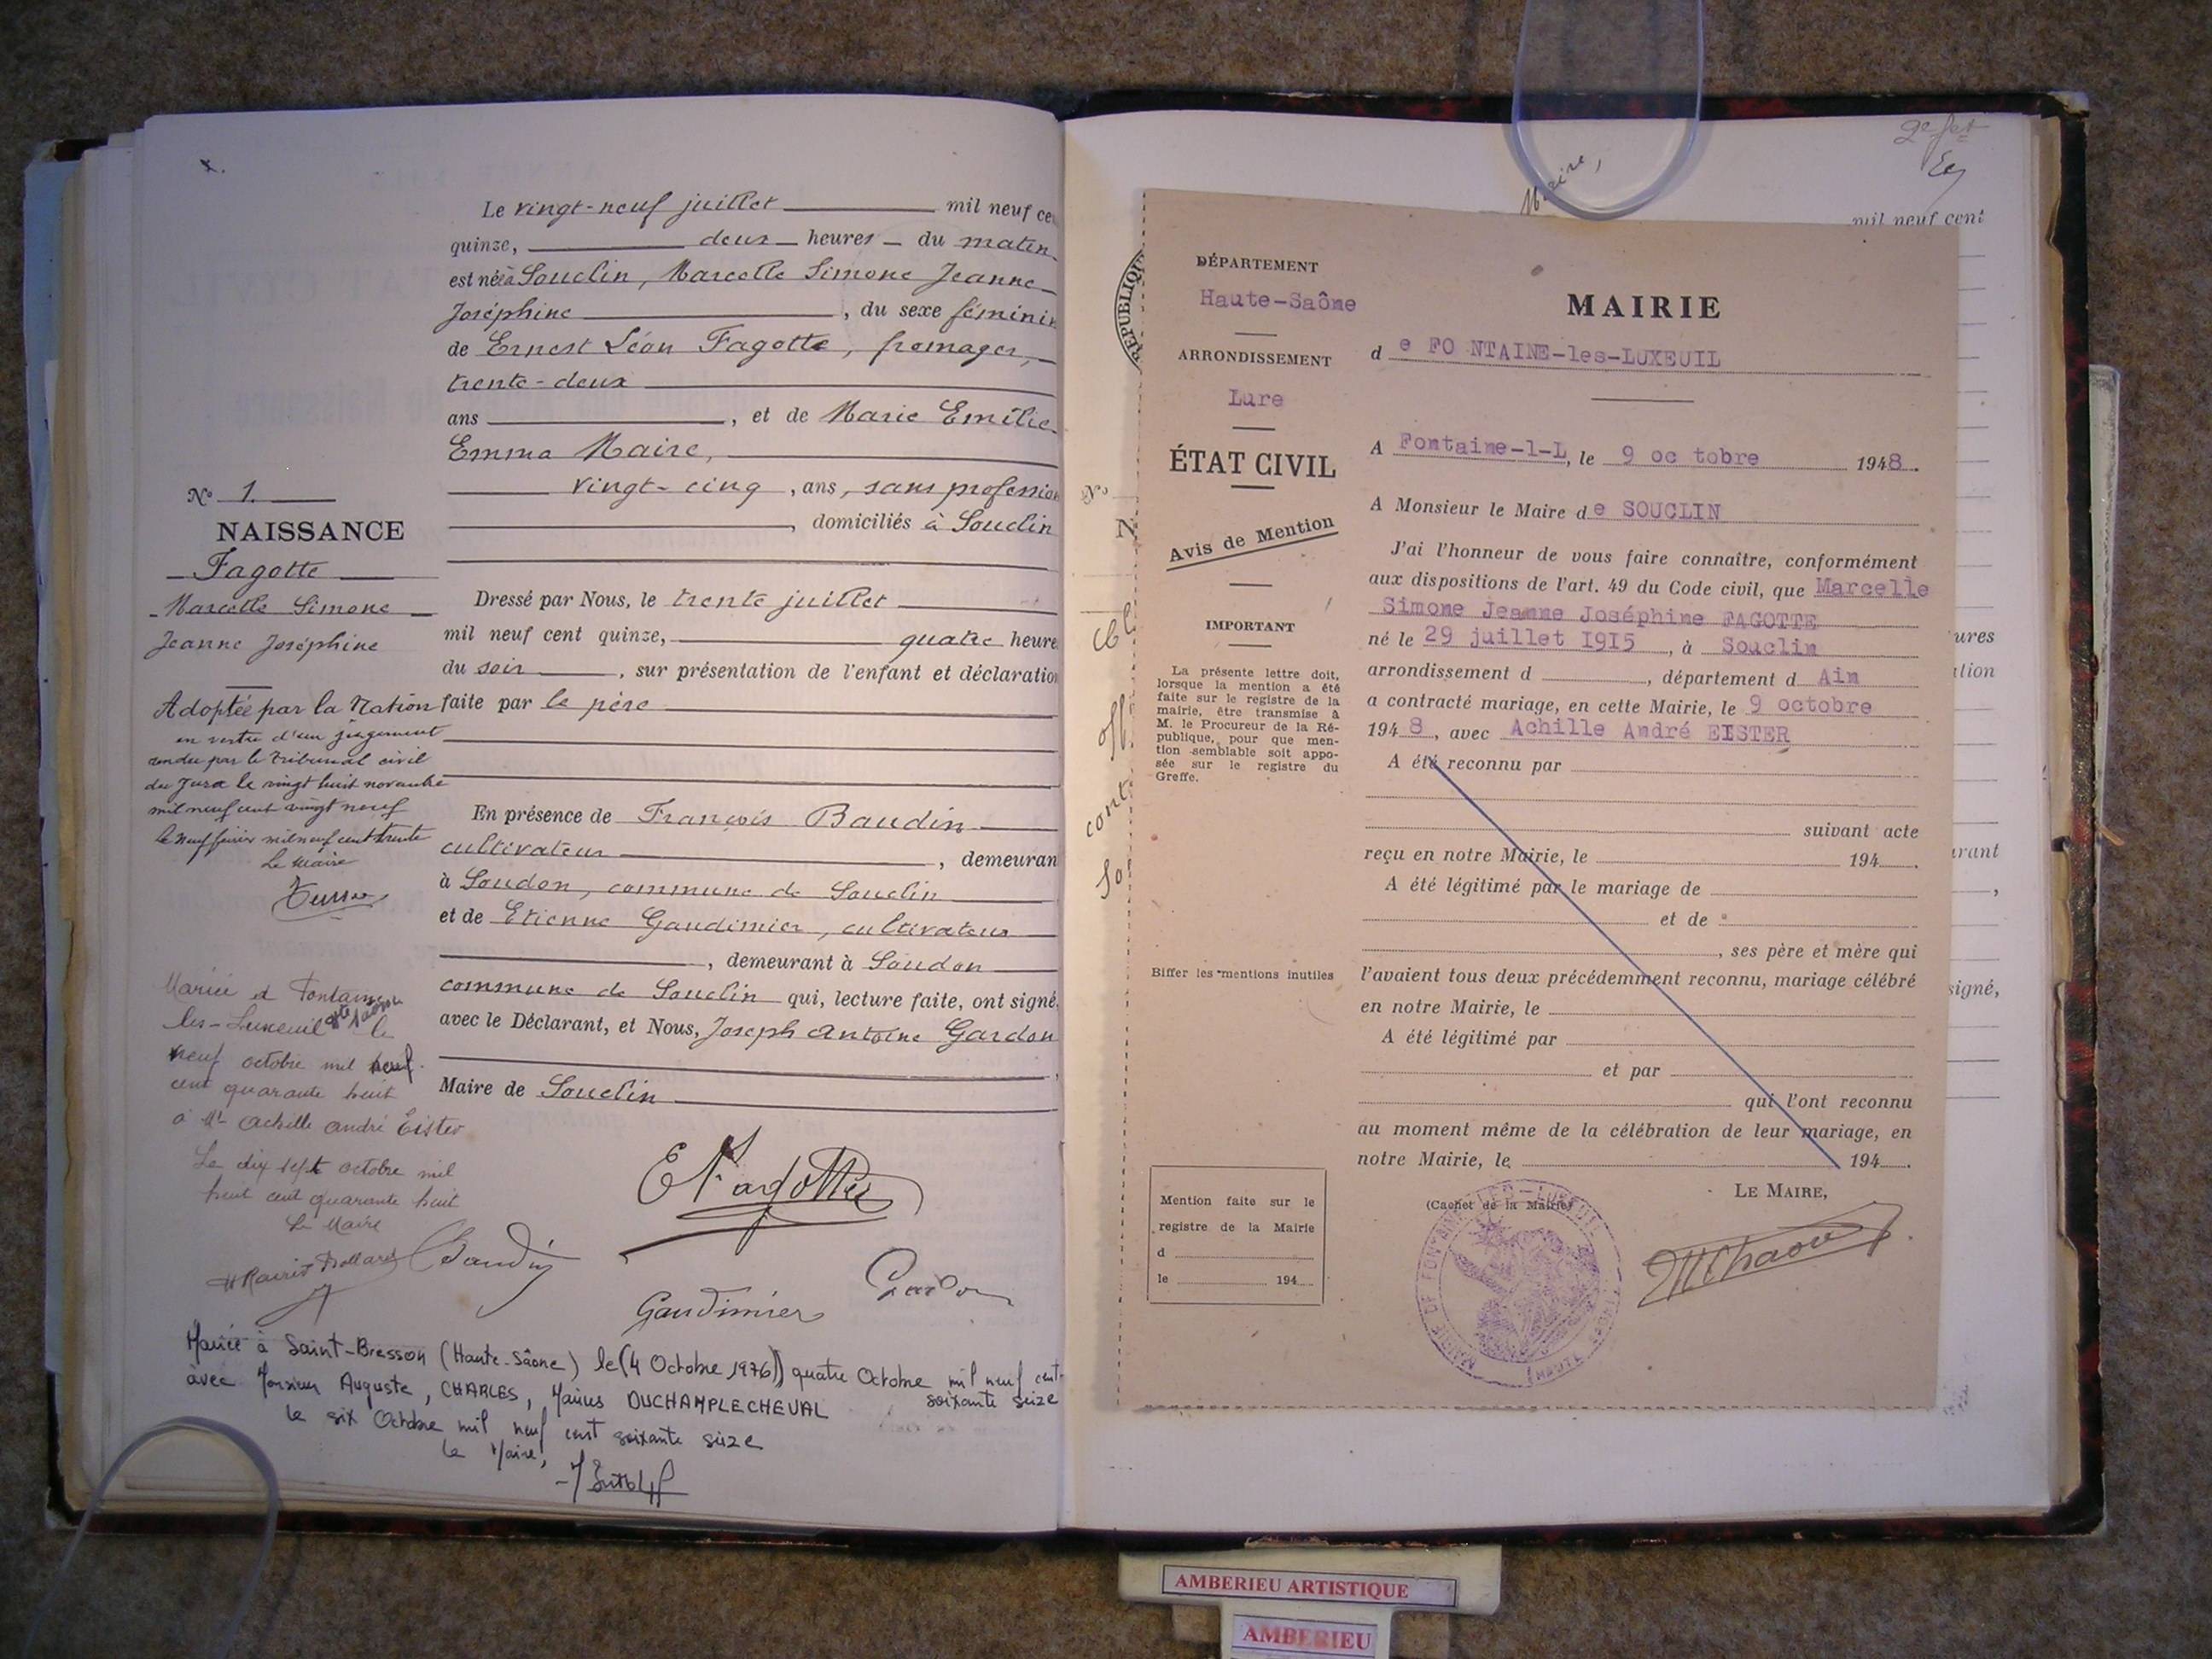 Le vingt-neuf juillet mil neuf ce
quinze, deux heures du matin
est née à Souclin, Marcelle Simone Jeanne
Joséphine, du sexe féminin
de Ernest Léon Fagotte, fromager,
trente-deux
ans, et de Marie Emilie
Emma Maire,
vingt-cinq, ans, sans profession
, domiciliés à Souclin
N° 1.
NAISSANCE
Fagotte
Marcelle Simone
Jeanne Joséphine
Dressé par Nous, le trente juillet
mil neuf cent quinze, quatre heure
du soir, sur présentation de l'enfant et déclaration
faite par le père
Adoptée par la Nation
en vertu d'un jugement
rendu par le tribunal civil
du Jura le vingt huit novembre
mil neuf cent vingt neuf
le neuf février mil neuf cent trente
Le Maire
En présence de François Baudin
cultivateur, demeuran
à Soudon, commune de Souclin
et de Etienne Gaudimier, cultivateur
, demeurant à Soudon
commune de Souclin qui, lecture faite, ont signé
avec le Déclarant, et Nous, Joseph Antoine Gardon
Maire de Souclin
Mariée à Fontaine
les-Luxeuil Hte Saone le
neuf octobre mil neuf
cent quarante huit
à Mr Achille André Eister
Le dix sept octobre mil
huit cent quarante huit
Le Maire
E Fagotte
Baudin
Gardon
Gaudimier
Mariée à Saint-Bresson (Haute-Sâone) le (4 Octobre 1976) quatre Octobre mil neuf cent
soixante seize
avec Monsieur Auguste, CHARLES, Marius DUCHAMPLECHEVAL
le six Octobre mil neuf cent soixante seize
Le Maire,
Maire,
mil neuf cent
RÉPUBLIQUE
DÉPARTEMENT
Haute-Saône
ARRONDISSEMENT
Lure
ÉTAT CIVIL
Avis de Mention
IMPORTANT
La présente lettre doit,
lorsque la mention a été
faite sur le registre de la
mairie, être transmise à
M. le Procureur de la Ré-
publique, pour que men-
tion semblable soit appo-
sée sur le registre du
Greffe.
Biffer les mentions inutiles
Mention faite sur le
registre de la Mairie
d
le 194
MAIRIE
de FO NTAINE-les-LUXEUIL
A Fontaine-l-L, le 9 oc tobre 1948.
A Monsieur le Maire de SOUCLIN
J'ai l'honneur de vous faire connaître, conformément
aux dispositions de l'art. 49 du Code civil, que Marcelle
Simone Jeanne Joséphine FAGOTTE
né le 29 juillet 1915, à Souclin
arrondissement d, département d Ain
a contracté mariage, en cette Mairie, le 9 octobre
1948, avec Achille André EISTER
A été reconnu par
suivant acte
reçu en notre Mairie, le 194.
A été légitimé par le mariage de
et de
, ses père et mère qui
l'avaient tous deux précédemment reconnu, mariage célébré
en notre Mairie, le
A été légitimé par
et par
qui l'ont reconnu
au moment même de la célébration de leur mariage, en
notre Mairie, le 194.
LE MAIRE,
(Cachet de la Mairie)
ures
ation
urant
signé,
AMBERIEU ARTISTIQUE
AMBERIEU